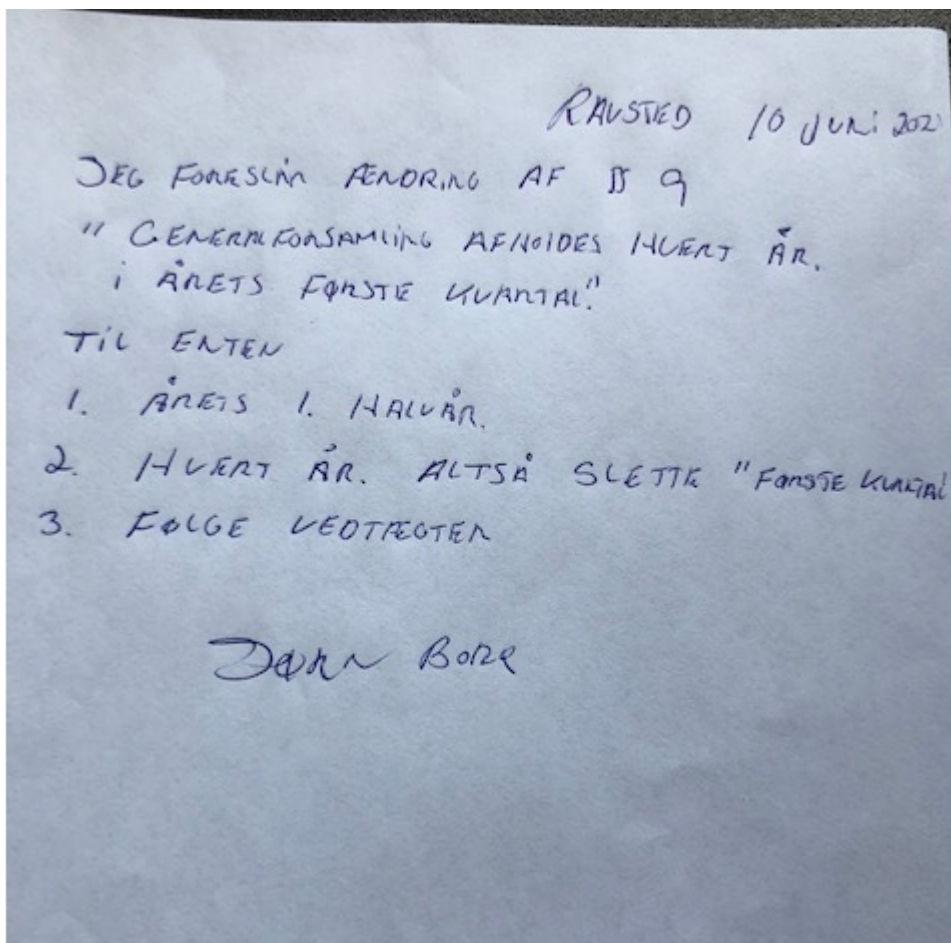 RAVSTED 10 JUNi 202
JEG FORESLÅR ÆNDRING AF § 9
"GENERALFORSAMLING AFHOLDES HVERT ÅR.
i ÅRETS FØRSTE KVARTAL."
TIL ENTEN
1. ÅRETS 1. HALVÅR.
2. HVERT ÅR. ALTSÅ SLETTE "FØRSTE KVARTAL
3. FØLGE VEDTÆGTER
JØRN